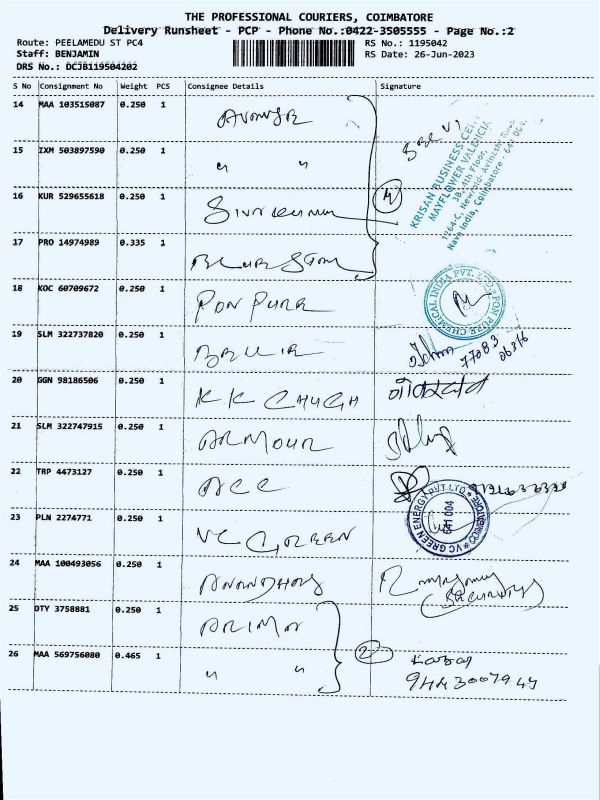 THE PROFESSIONAL COURIERS, COIMBATORE
Delivery Runsheet - PCP - Phone No.:0422-3505555 - Page No.:2
Route: PEELAMEDU ST PC4
RS No.: 1195042
Staff: BENJAMIN
RS Date: 26-Jun-2023
DRS No.: DCJB119504202
S No Consignment No Weight PCS Consignee Details Signature
14 MAA 103515087 0.250 1
15 IXM 503897590 0.250 1 " "
16 KUR 529655618 0.250 1
17 PRO 14974989 0.335 1
KRISAN BUSINESS CEN
MAYFLOWER VALENCIA
3B, 4th Floor,
1264-C, New/old- Avinashi Road
Nava India, Coimbatore - 641 004.
4
18 KOC 60709672 0.250 1 PON PURE
PON PURE CHEMICAL INDIA PVT. LTD.
19 SLM 322737820 0.250 1
77083
06316
20 GGN 98186506 0.250 1 KK CHUGH
21 SLM 322747915 0.250 1 ARMOUR
22 TRP 4473127 0.250 1 ACC
23 PLN 2274771 0.250 1 VC GREEN
VC GREEN ENERGY PVT LTD COIMBATORE
641 004
24 MAA 100493056 0.250 1
25 OTY 3758881 0.250 1
26 MAA 569756080 0.465 1 " "
2
9443007947